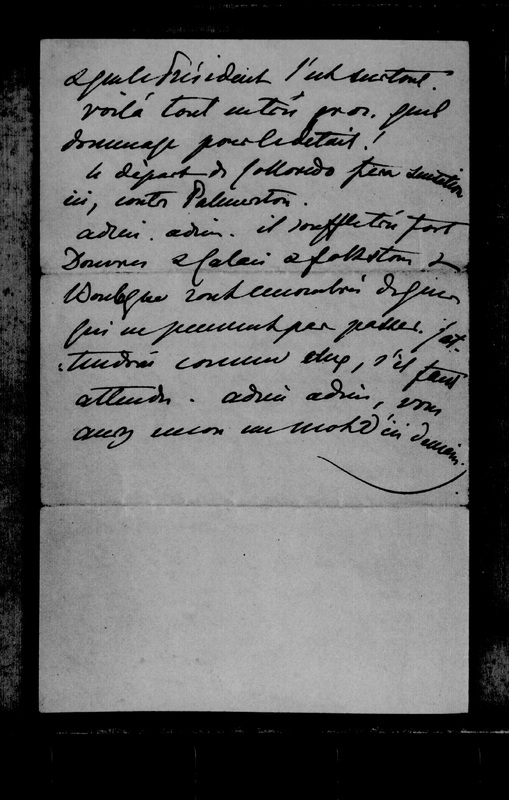 & que le Président l'est surtout.
voilà tout en très gros. quel
dommage pour le détail !
le départ de fera sensation
ici, contre Palmerston.
adieu. adieu. il souffle très fort
Douvres & Calais & folkston &
Boulogne sont encombrés de gens
qui ne peuvent pas passer. j'at-
tendrai comme eux, s'il faut
attendre. adieu adieu, vous
aurez encore un mot d'ici demain.